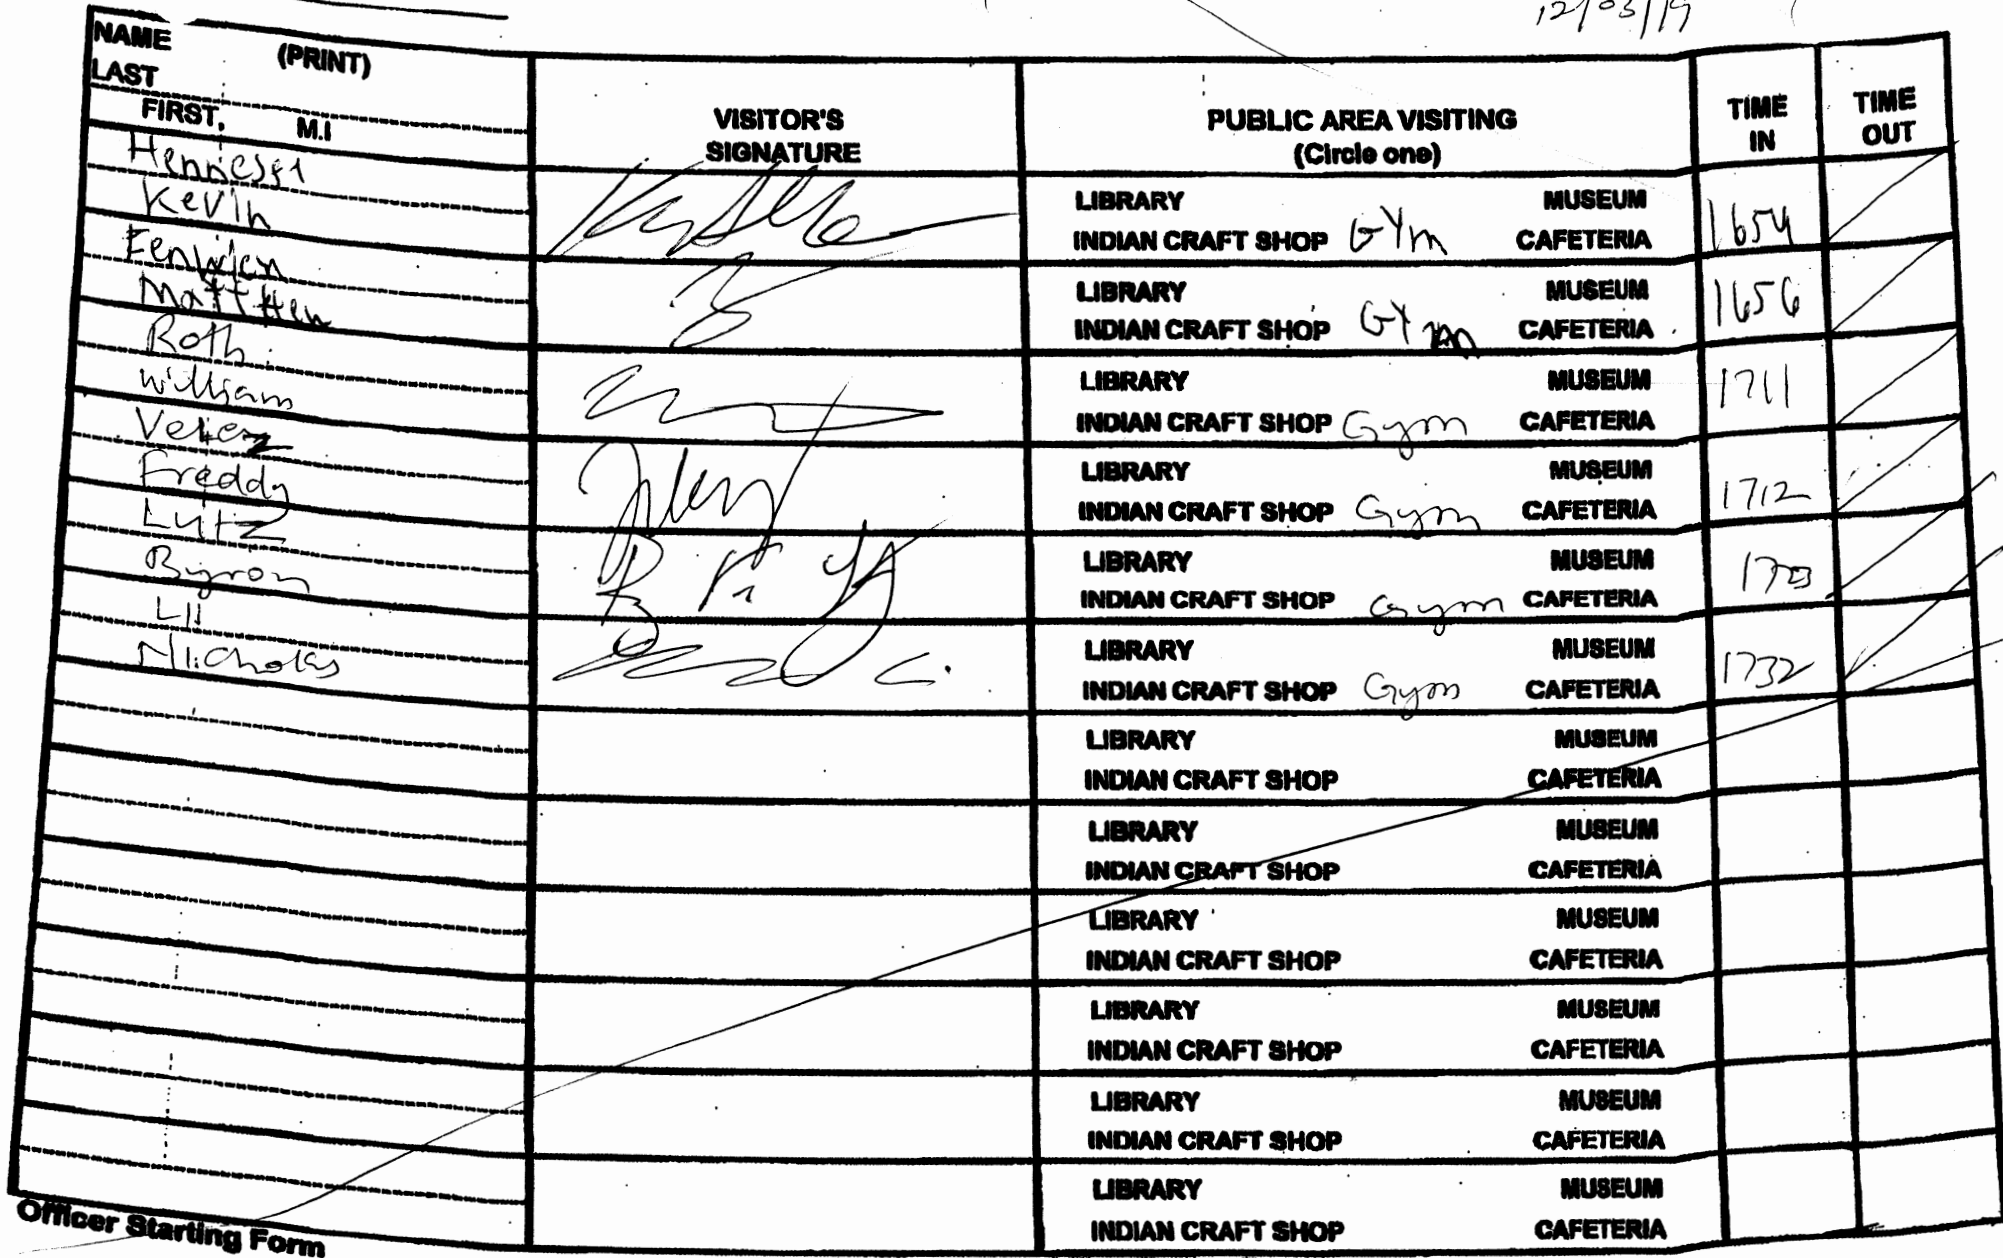 12/03/19
NAME (PRINT)
LAST
FIRST, M.I
VISITOR'S
SIGNATURE
PUBLIC AREA VISITING
(Circle one)
TIME
IN
TIME
OUT
Kevin
LIBRARY MUSEUM
INDIAN CRAFT SHOP GYm CAFETERIA
1654
MaTTHew
LIBRARY MUSEUM
INDIAN CRAFT SHOP GYm CAFETERIA
1656
Roth
William
LIBRARY MUSEUM
INDIAN CRAFT SHOP Gym CAFETERIA
1711
Velez
Freddy
LIBRARY MUSEUM
INDIAN CRAFT SHOP Gym CAFETERIA
1712
Lutz
Byron
LIBRARY MUSEUM
INDIAN CRAFT SHOP Gym CAFETERIA
Nicholas
LIBRARY MUSEUM
INDIAN CRAFT SHOP Gym CAFETERIA
1732
LIBRARY MUSEUM
INDIAN CRAFT SHOP CAFETERIA
LIBRARY MUSEUM
INDIAN CRAFT SHOP CAFETERIA
LIBRARY MUSEUM
INDIAN CRAFT SHOP CAFETERIA
LIBRARY MUSEUM
INDIAN CRAFT SHOP CAFETERIA
LIBRARY MUSEUM
INDIAN CRAFT SHOP CAFETERIA
LIBRARY MUSEUM
INDIAN CRAFT SHOP CAFETERIA
Officer Starting Form